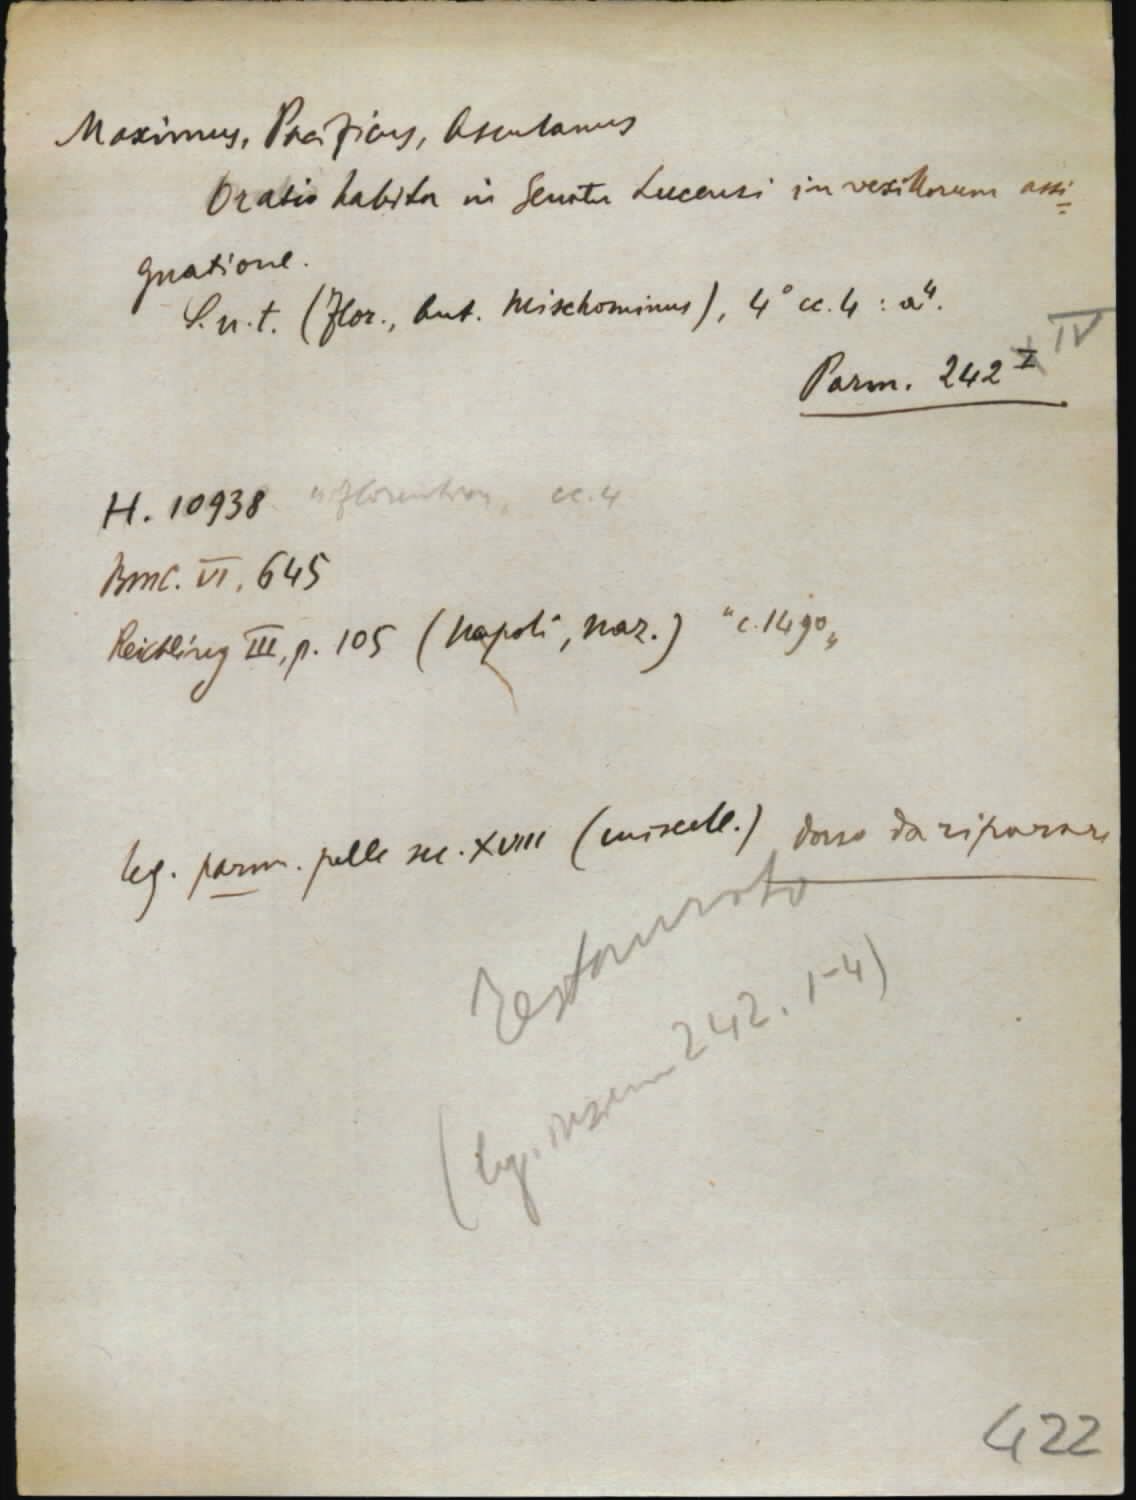 Maximus, Pacificus, Asculanus
Oratio habita in Senatu Lucensi in vexillorum assi=
gnatione.
S.n.t. (Flor., Ant. Mischominus), 4° cc. 4 : a⁴.
IV
Parm. 242
H. 10938 "Florentiae, cc. 4
BMC. VI. 645
Reichling III, p. 105 (Napoli, Naz.) "c. 1490"
leg. parm. pelle sec. XVIII (miscell.) dorso da riparare
restaurato
(leg. insieme 242. 1-4)
422